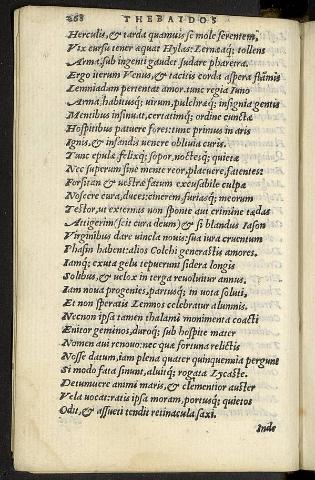 268 THEBAIDOS
Herculis, & tarda quamuis se mole ferentem,
Vix cursu tener aequat Hylas: Lernaeaq; tollens
Arma, sub ingenti gaudet sudare pharetra.
Ergo iterum Venus, & tacitis corda aspera flāmis
Lemniadum pertentat amor. tunc regia Iuno
Arma, habitusq; uirum, pulchraq; insignia gentis
Mentibus insinuat, certatimq; ordine cunctae
Hospitibus patuere fores: tunc primus in aris
Ignis, & infandis uenere obliuia curis.
Tunc epulae, felixq; sopor, noctesq; quietae
Nec superum sine mente reor, placuere, fatentes:
Forsitan & uestrae fatum excusabile culpae
Noscere cura, duces: cinerem, furiasq; meorum
Testor, ut externas non sponte aut crimine taedas
Attigerim (scit cura deum) & si blandus Iason
Virginibus dare uincla nouis: sua iura cruentum
Phasin habent: alios Colchi generastis amores.
Iamq; exuta gelu tepuerunt sidera longis
Solibus, & uelox in terga reuoluitur annus.
Iam noua progenies, partusq; in uota soluti,
Et non speratis Lemnos celebratur alumnis.
Necnon ipsa tamen thalami monimenta coacti
Enitor geminos, duroq; sub hospite mater
Nomen aui renouo: nec quae fortuna relictis
Nosse datum, iam plena quater quinquennia pergunt
Si modo fata sinunt, aluitq; rogata Lycaste.
Detumuere animi maris, & clementior auster
Vela uocat: ratis ipsa moram, portusq; quietos
Odit, & assueti tendit retinacula saxi.
Inde